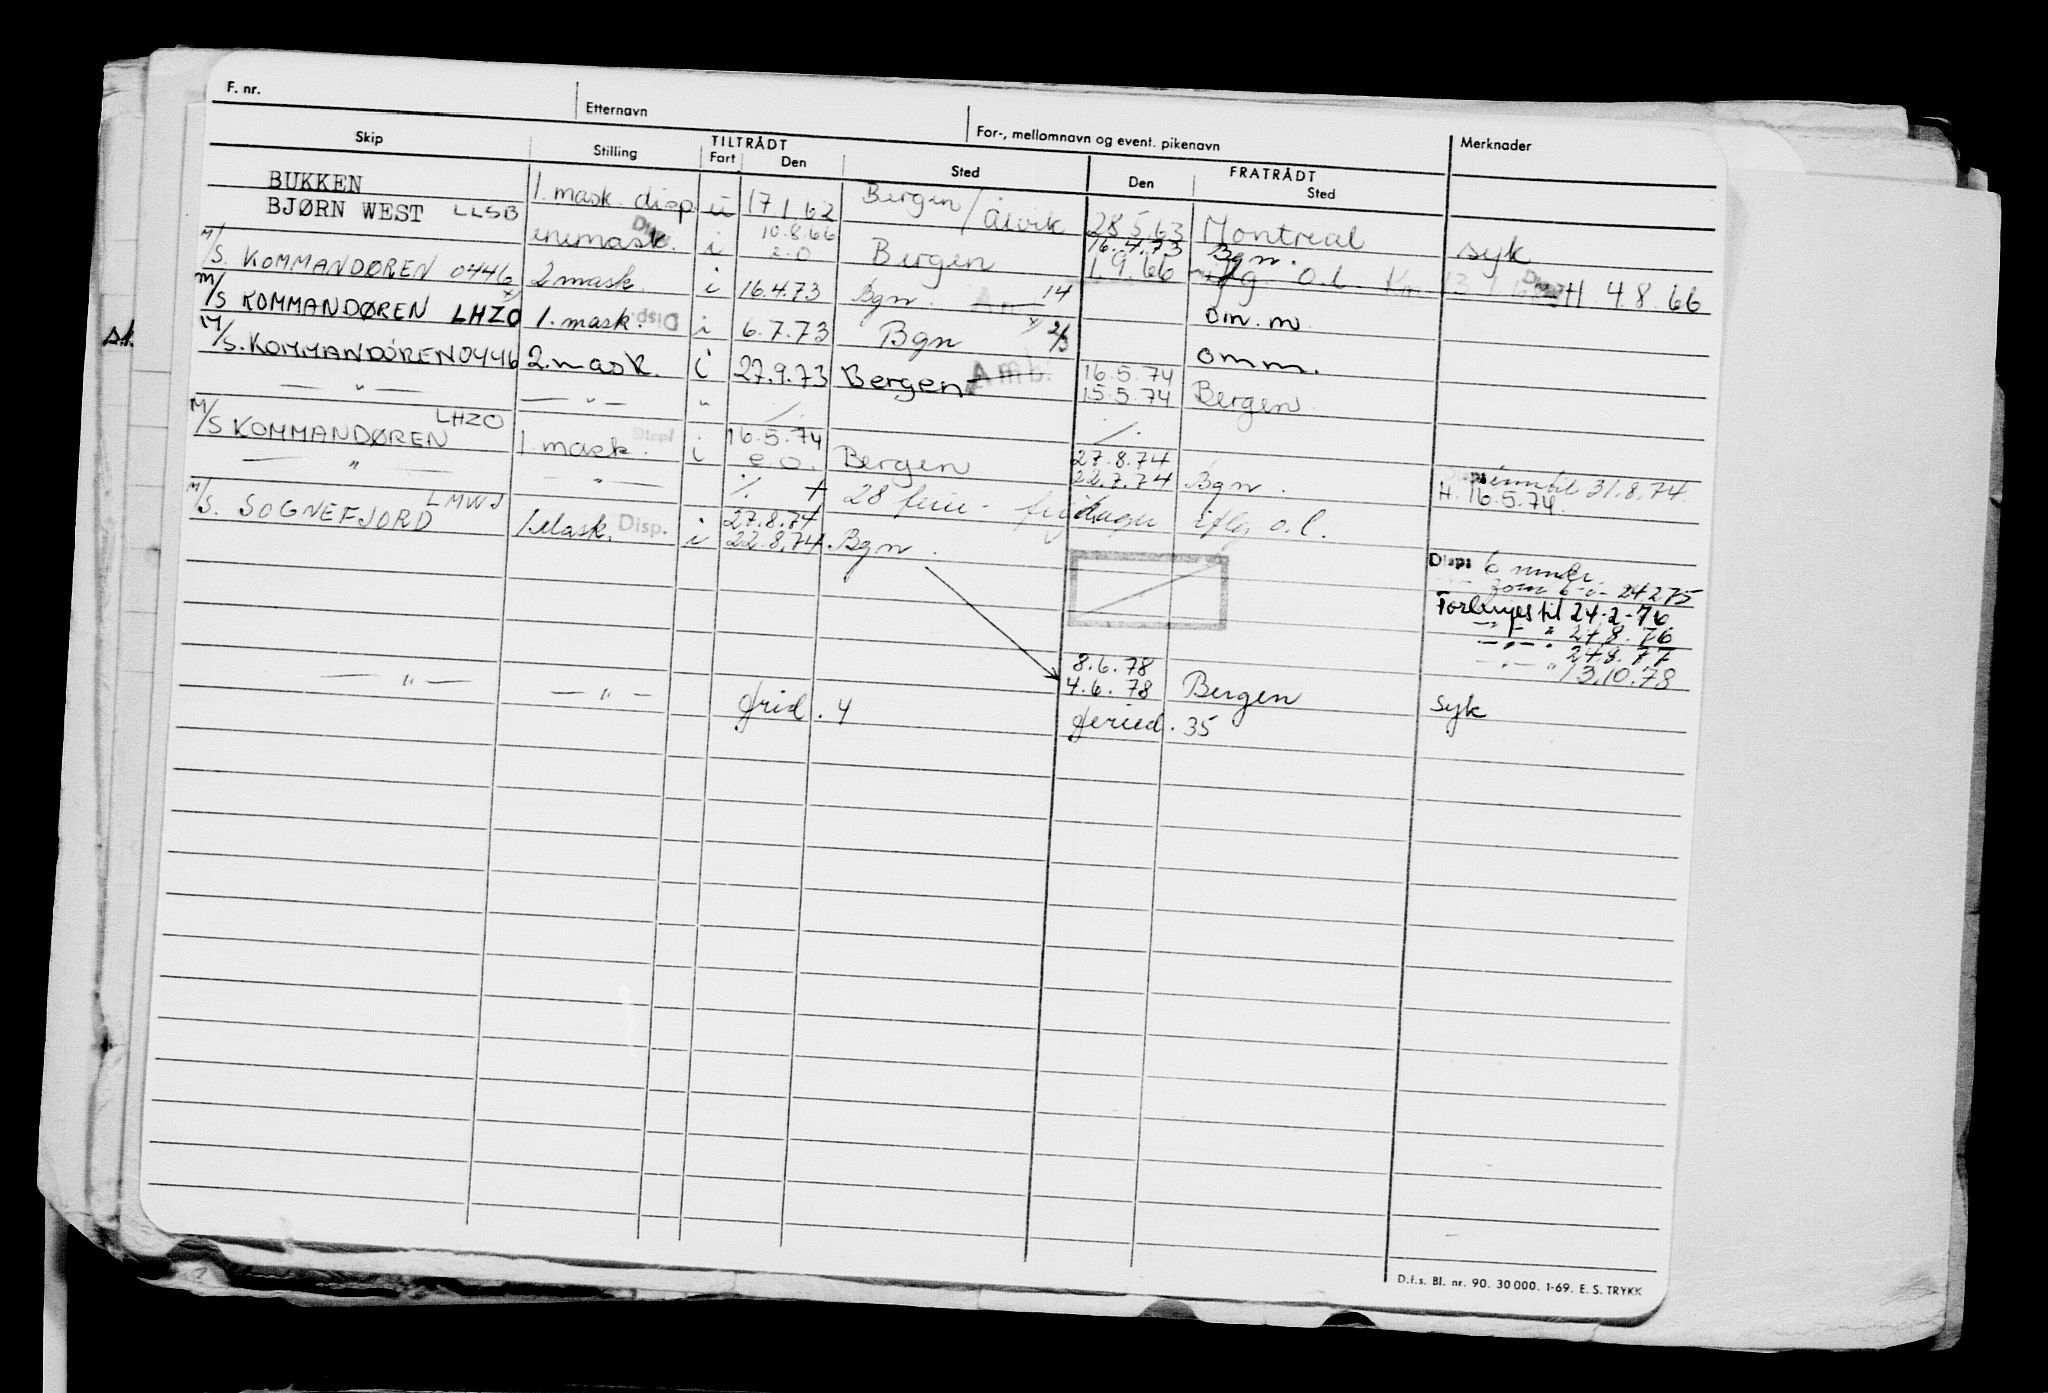 F. nr.
Etternavn
For-, mellomnavn og event. pikenavn
Merknader
Skip
Stilling
TILTRÅDT
Fart
Den
Sted
FRATRÅDT
Den
Sted
BUKKEN 1. mask. disp. u 17.1.62 Bergen / Ålvik 28.5.63 Montreal syk
BJØRN WEST LLSB enemask. Disp. i 10.8.66 e.o Bergen 16.4.73 Bgn. 1.9.66 o.l. H. 4.8.66
M/S. KOMMANDØREN 0446 2 mask. i 16.4.73 Bgn. 14 din. m
M/S KOMMANDØREN LHZO 1. mask. Disp. i 6.7.73 Bgn 2/3 omm.
M/S. KOMMANDØREN 0446 2. mask. i 27.9.73 Bergen Amb. 16.5.74 15.5.74 Bergen
— " — — " — " ./. ./.
M/S KOMMANDØREN LHZO 1. mask. Disp. i 16.5.74 e.o. Bergen 27.8.74 22.7.74 Bgn. inntil 31.8.74. H. 16.5.74.
— " — — " — ./. + 28 ferie- dager iflg. o.l.
M/S. SOGNEFJORD LMWJ 1. Mask. Disp. i 27.8.74 22.8.74. Bgn.
Disp: 6 mndr.
24 2 75
Forlenges til 24-2-76
— " — " 24.8.76
— " — " 24.8.77
— " — " 13.10.78
8.6.78
4.6.78 Bergen syk
— " — — " — frid. 4 feried. 35
D.f.s. Bl. nr. 90. 30 000. 1-69. E. S. TRYKK